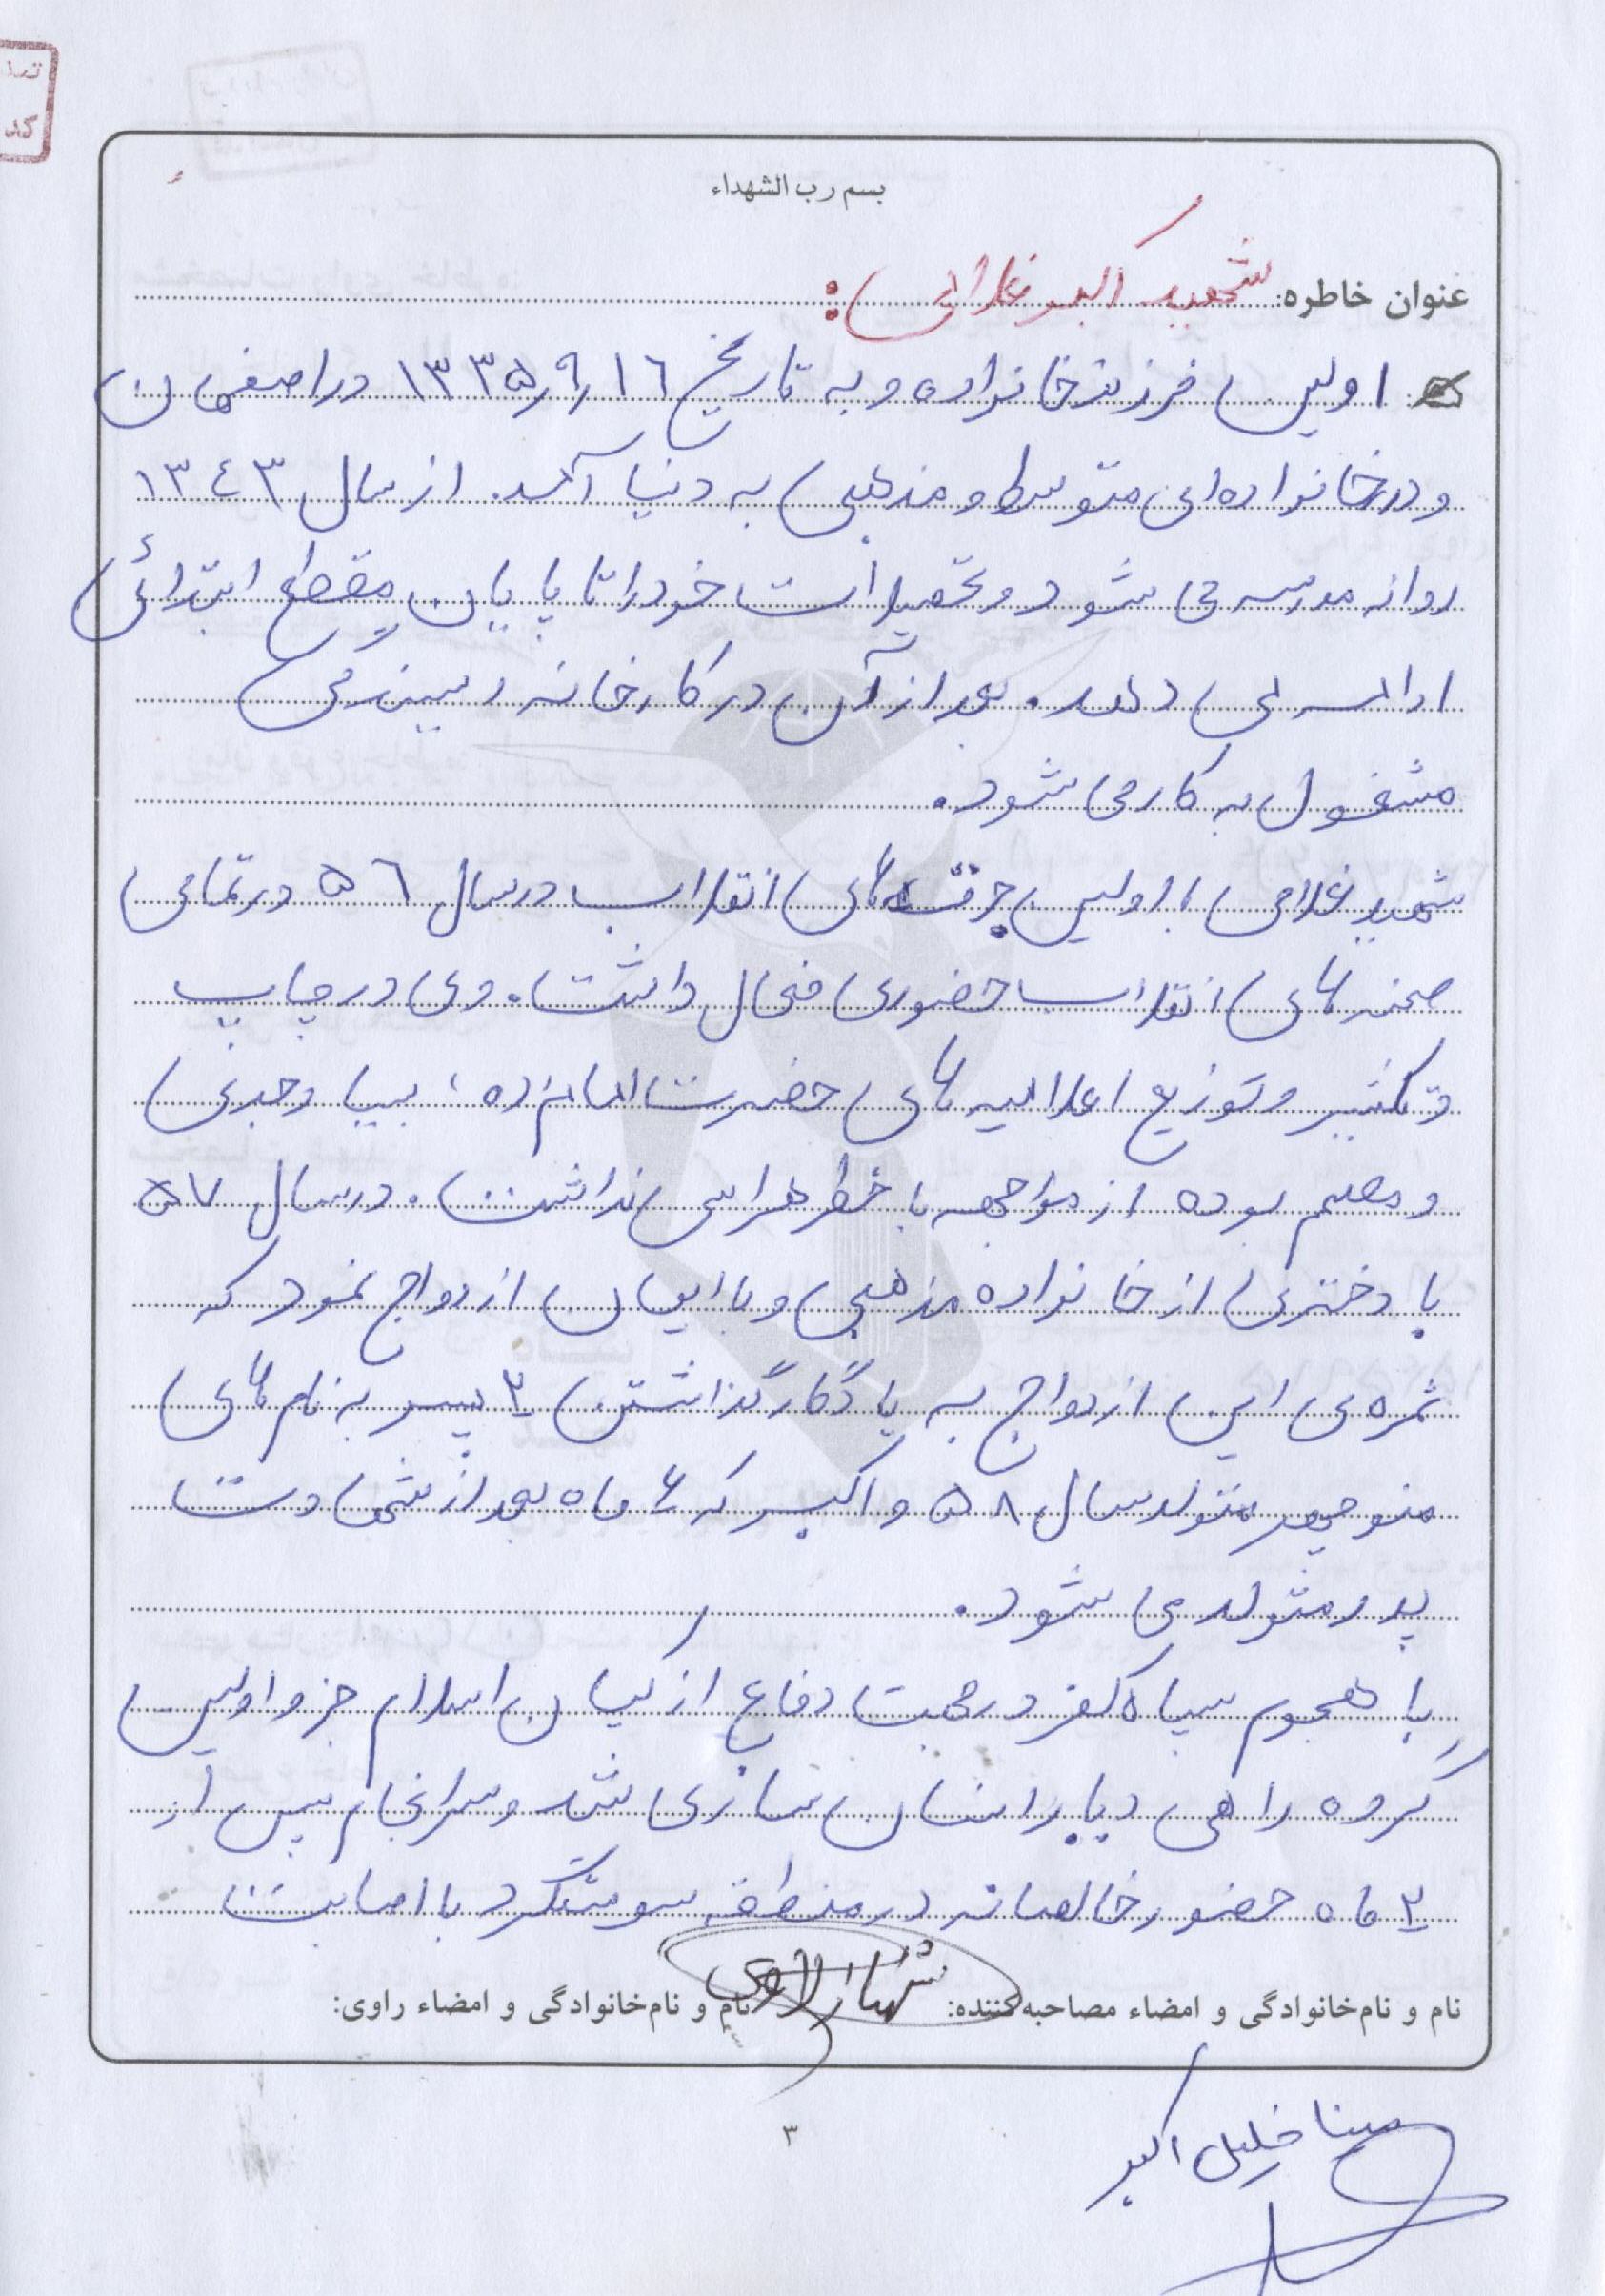 تعد
کد
بسم رب الشهداء
عنوان خاطره: شهید اکبر غلامی :
اولین فرزند خانواده و به تاریخ ۱۳۳۵٫۹٫۱۶ در اصفهان
و در خانواده‌ای متوسط و مذهبی به دنیا آمد. از سال ۱۳۴۳
روانه مدرسه می شود و تحصیلات خود را تا پایان مقطع ابتدائی
ادامه می دهد. بعد از آن در کارخانه ریسندگی
مشغول به کار می شود.
شهید غلامی با اولین جرقه‌های انقلاب در سال ۵۶ در تمامی
صحنه‌های انقلاب حضوری فعال داشت. وی در چاپ
و تکثیر و توزیع اعلامیه های حضرت امام (ره) بسیار جدی
و مصمم بوده از مواجهه با خطر هراسی نداشت. در سال ۵۷
با دختری از خانواده مذهبی و با ایمان ازدواج نمود که
ثمره‌ی این ازدواج به یادگار گذاشتن ۲ پسر به نام های
منوچهر متولد سال ۵۸ و اکبر که ۶ ماه بعد از شهادت
پدر متولد می شود.
با هجوم سپاه کفر در جهت دفاع از کیان اسلام جزو اولین
گروه راهی دیار انسان سازی شد و سرانجام پس از
۲ ماه حضور خالصانه در منطقه سوسنگرد با اصابت
نام و نام‌خانوادگی و امضاء مصاحبه‌کننده: نام و نام‌خانوادگی و امضاء راوی:
مینا خلیل اکبر
۳